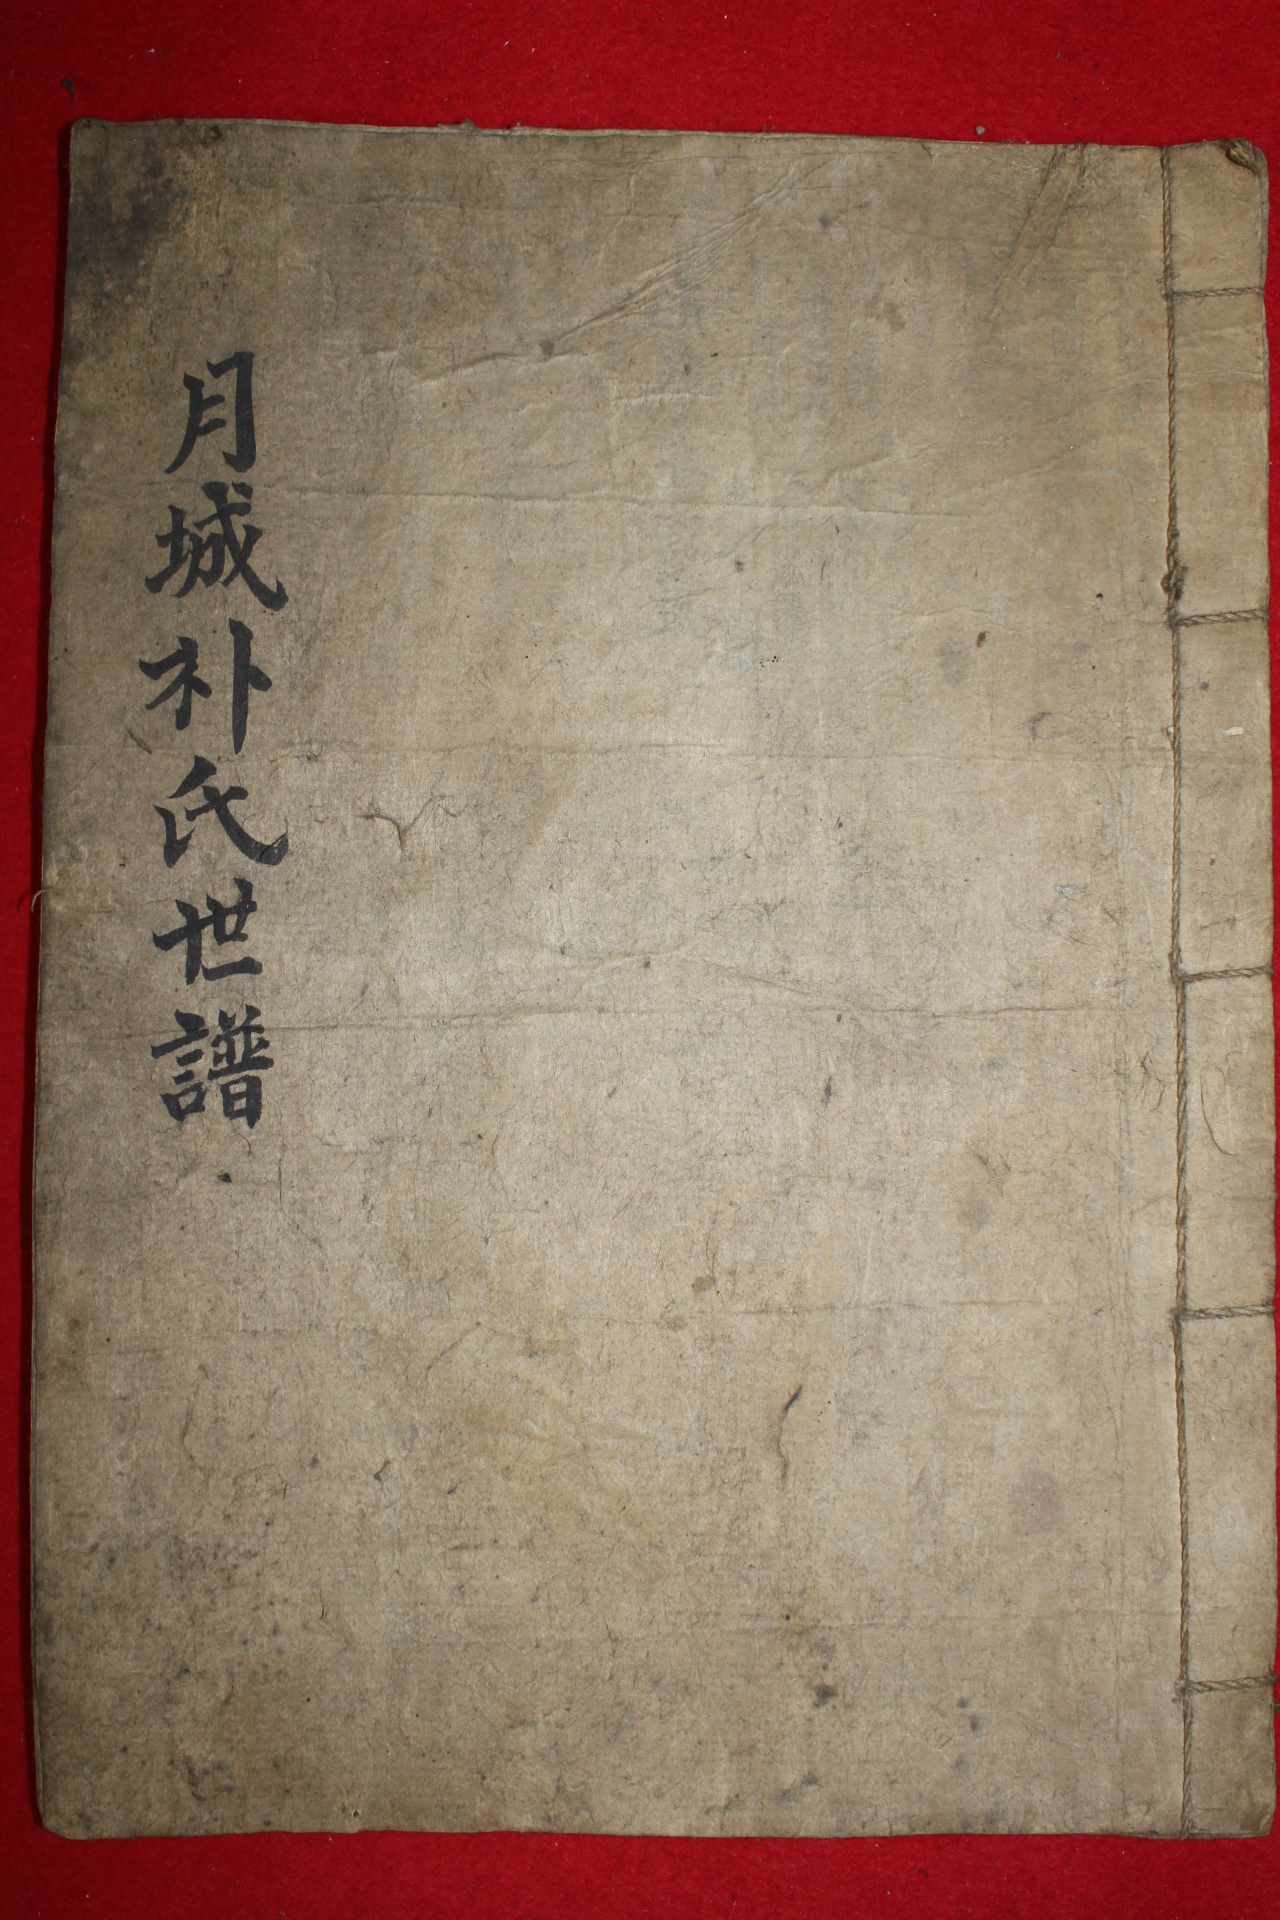 月城朴氏世譜